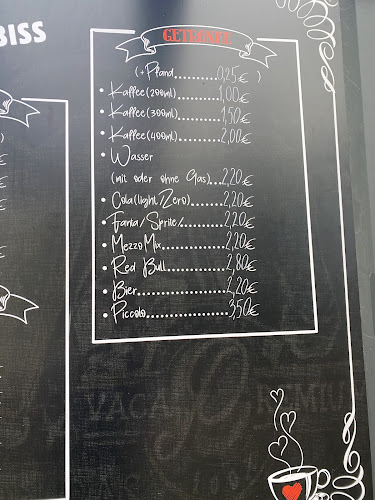 BISS
GETRÄNKE
(+Pfand..........0,25€ )
• Kaffee(200ml)..........1,00€
• Kaffee(300ml)..........1,50€
• Kaffee(400ml)..........2,00€
• Wasser
(mit oder ohne Gas)...2,20€
• Cola(light/Zero).........2,20€
• Fanta/Sprite/..........2,20€
• Mezzo Mix..............2,20€
• Red Bull...............2,80€
• Bier...................2,20€
• Piccolo................3,50€